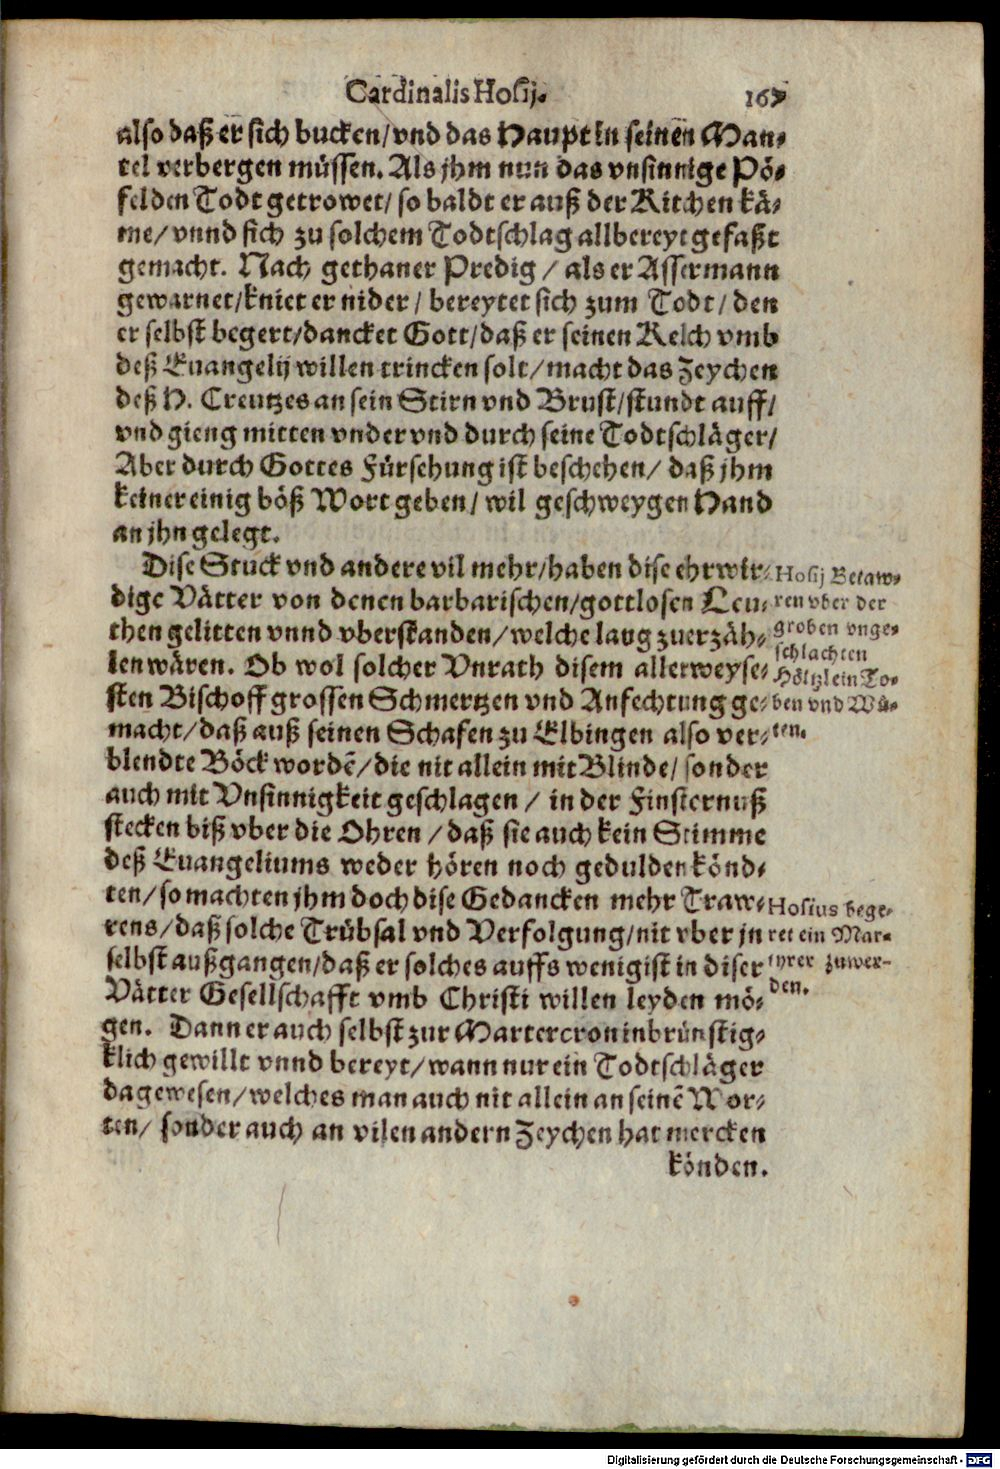 Cardinalis Hosij. 167
also daß er sich bucken/ vnd das Haupt in seinen Man-
tel verbergen müssen. Als jhm nun das vnsinnige Pö-
fel den Todt getrowet/ so baldt er auß der Kirchen kä-
me/ vnnd sich zu solchem Todtschlag allbereyt gefaßt
gemacht. Nach gethaner Predig / als er Assermann
gewarnet/ kniet er nider / bereytet sich zum Todt/ den
er selbst begert/ dancket Gott/ daß er seinen Kelch vmb
deß Euangelij willen trincken solt/ macht das Zeychen
deß H. Creutzes an sein Stirn vnd Brust/ stundt auff/
vnd gieng mitten vnder vnd durch seine Todtschläger/
Aber durch Gottes Fürsehung ist beschehen/ daß jhm
keiner einig böß Wort geben/ wil geschweygen Hand
an jhn gelegt.
Dise Stuck vnd andere vil mehr/ haben dise ehrwir-
dige Vätter von denen barbarischen/ gottlosen Leu-
then gelitten vnnd vberstanden/ welche lang zuerzäh-
len wären. Ob wol solcher Vnrath disem allerweyse-
sten Bischoff grossen Schmertzen vnd Anfechtung ge-
macht/ daß auß seinen Schafen zu Elbingen also ver-
blendte Böck wordẽ/ die nit allein mit Blinde/ sonder
auch mit Vnsinnigkeit geschlagen / in der Finsternuß
stecken biß vber die Ohren / daß sie auch kein Stimme
deß Euangeliums weder hören noch gedulden könd-
ten/ so machten jhm doch dise Gedancken mehr Traw-
rens/ daß solche Trübsal vnd Verfolgung/ nit vber jn
selbst außgangen/ daß er solches auffs wenigist in diser
Vätter Gesellschafft vmb Christi willen leyden mö-
gen. Dann er auch selbst zur Martercron inbrünstig-
klich gewillt vnnd bereyt/ wann nur ein Todtschläger
da gewesen/ welches man auch nit allein an seinẽ Wor-
ten/ sonder auch an vilen andern Zeychen hat mercken
könden.
Hosij Betaw-
ren vber der
groben vnge-
schlachten
Höltzlein To-
ben vnd Wü-
ten.
Hosius bege-
ret ein Mar-
tyrer zuwer-
den.
Digitalisierung gefördert durch die Deutsche Forschungsgemeinschaft - DFG